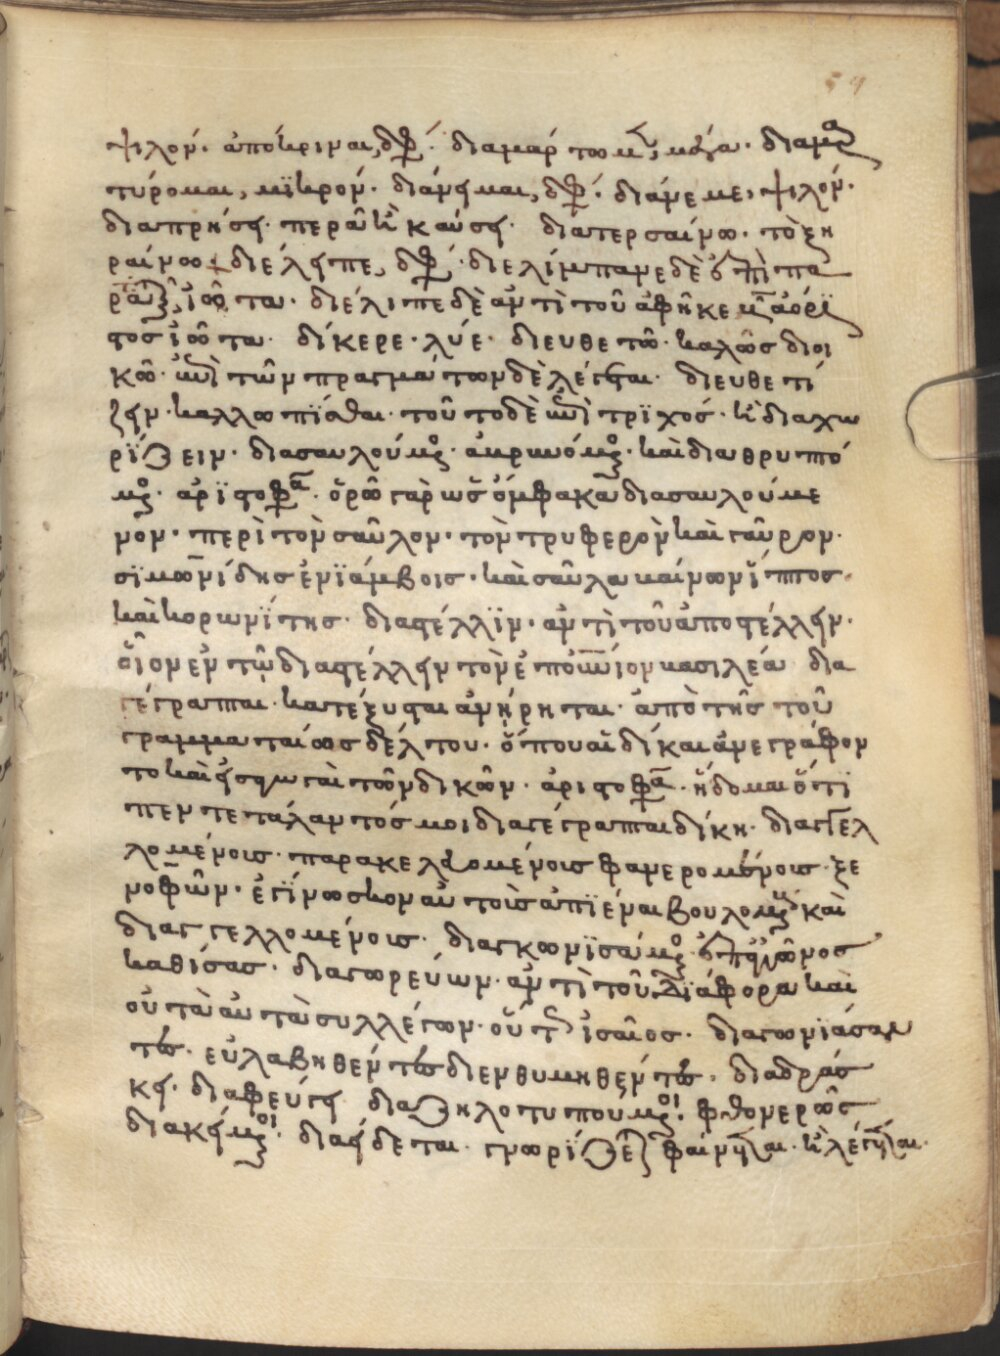 59
ψιλόν. ἀπόκριναι, διφ. διαμαρτ μέγα. διαμ
τύρομαι, μϊκρόν. διάνειμαι, διφ. διάνεμε, ψιλόν.
διαπρήσει. περᾶ κ καύσει. διατερσαίνω. τὸ ξη
ραίνω. διέλειπε, διφ. διελίμπανε δὲ ἐπὶ πα
ἰῶτα. διέλιπε δὲ ἀντὶ τοῦ ἀφῆκε
στος ἰῶτα. δίκερε. λύε. διευθετῶ. καλῶς διοι
κῶ. ἐπὶ τῶν πραγμάτων δὲ λέγεται. διευθετί
ζειν. καλλωπίσθαι. τοῦτο δὲ ἐπὶ τρϊχός. κ διαχω
ρίζειν. διασαυλούμενος. ἁβρυνόμενος. καὶ διαθρυπτό
μενος. ἀρϊστοφα. ὅρω γὰρ ὡς ὄμφακα διασαυλούμε
νον. περὶ τὸν σαῦλον. τὸν τρυφερὸν καὶ γαῦρον.
σϊμωνίδης ἐν ϊάμβοις. καὶ σαῦλα βαίνων ἵππος
καὶ κορωνϊτης. διαστέλλϊν. ἀντὶ τοῦ ἀποστέλλειν.
οἷον ἐν τῶ διαστέλλειν τὸν βασιλέα δια
γέγραπται. κατέξυσται ἀνήρηται. ἀπὸ τῆς τοῦ
γραμματαίως δέλτου. ὅπου αἱ δίκαι ἀνεγράφον
το καὶ εἰσαγωγαὶ τῶν δικῶν. ἀριστοφα. ἥδομαι ὅτι
πεντετάλαντός μοι διαγέγραπται δίκη. διαγγελ
λομένοις. παρακελευομένοις φανερομένοις. ξε
νοφῶν. ἐγίνωσκον αὐτοῖς ἀπϊέναι βουλομ καὶ
διαγγελλομένοις. διαγκωνϊσάμενος ἐπ' ἀγκῶνος
καθίσας. διαγωρεύων. ἀντὶ τοῦ διάφορα καὶ
οὐ τὰ αὐτὰ συλλέγων. οὕτως ἰσαῖος. διαγωνϊάσαν
τως. εὐλαβηθέντως διενθυμηθέντως. διαδράσ
κει. διαφεύγει διαζηλοτυπούμενοι. φθονερῶς
διακείμενοι. διαείδεται. γνωρίζεται φαίνεται. κ λέγεται.